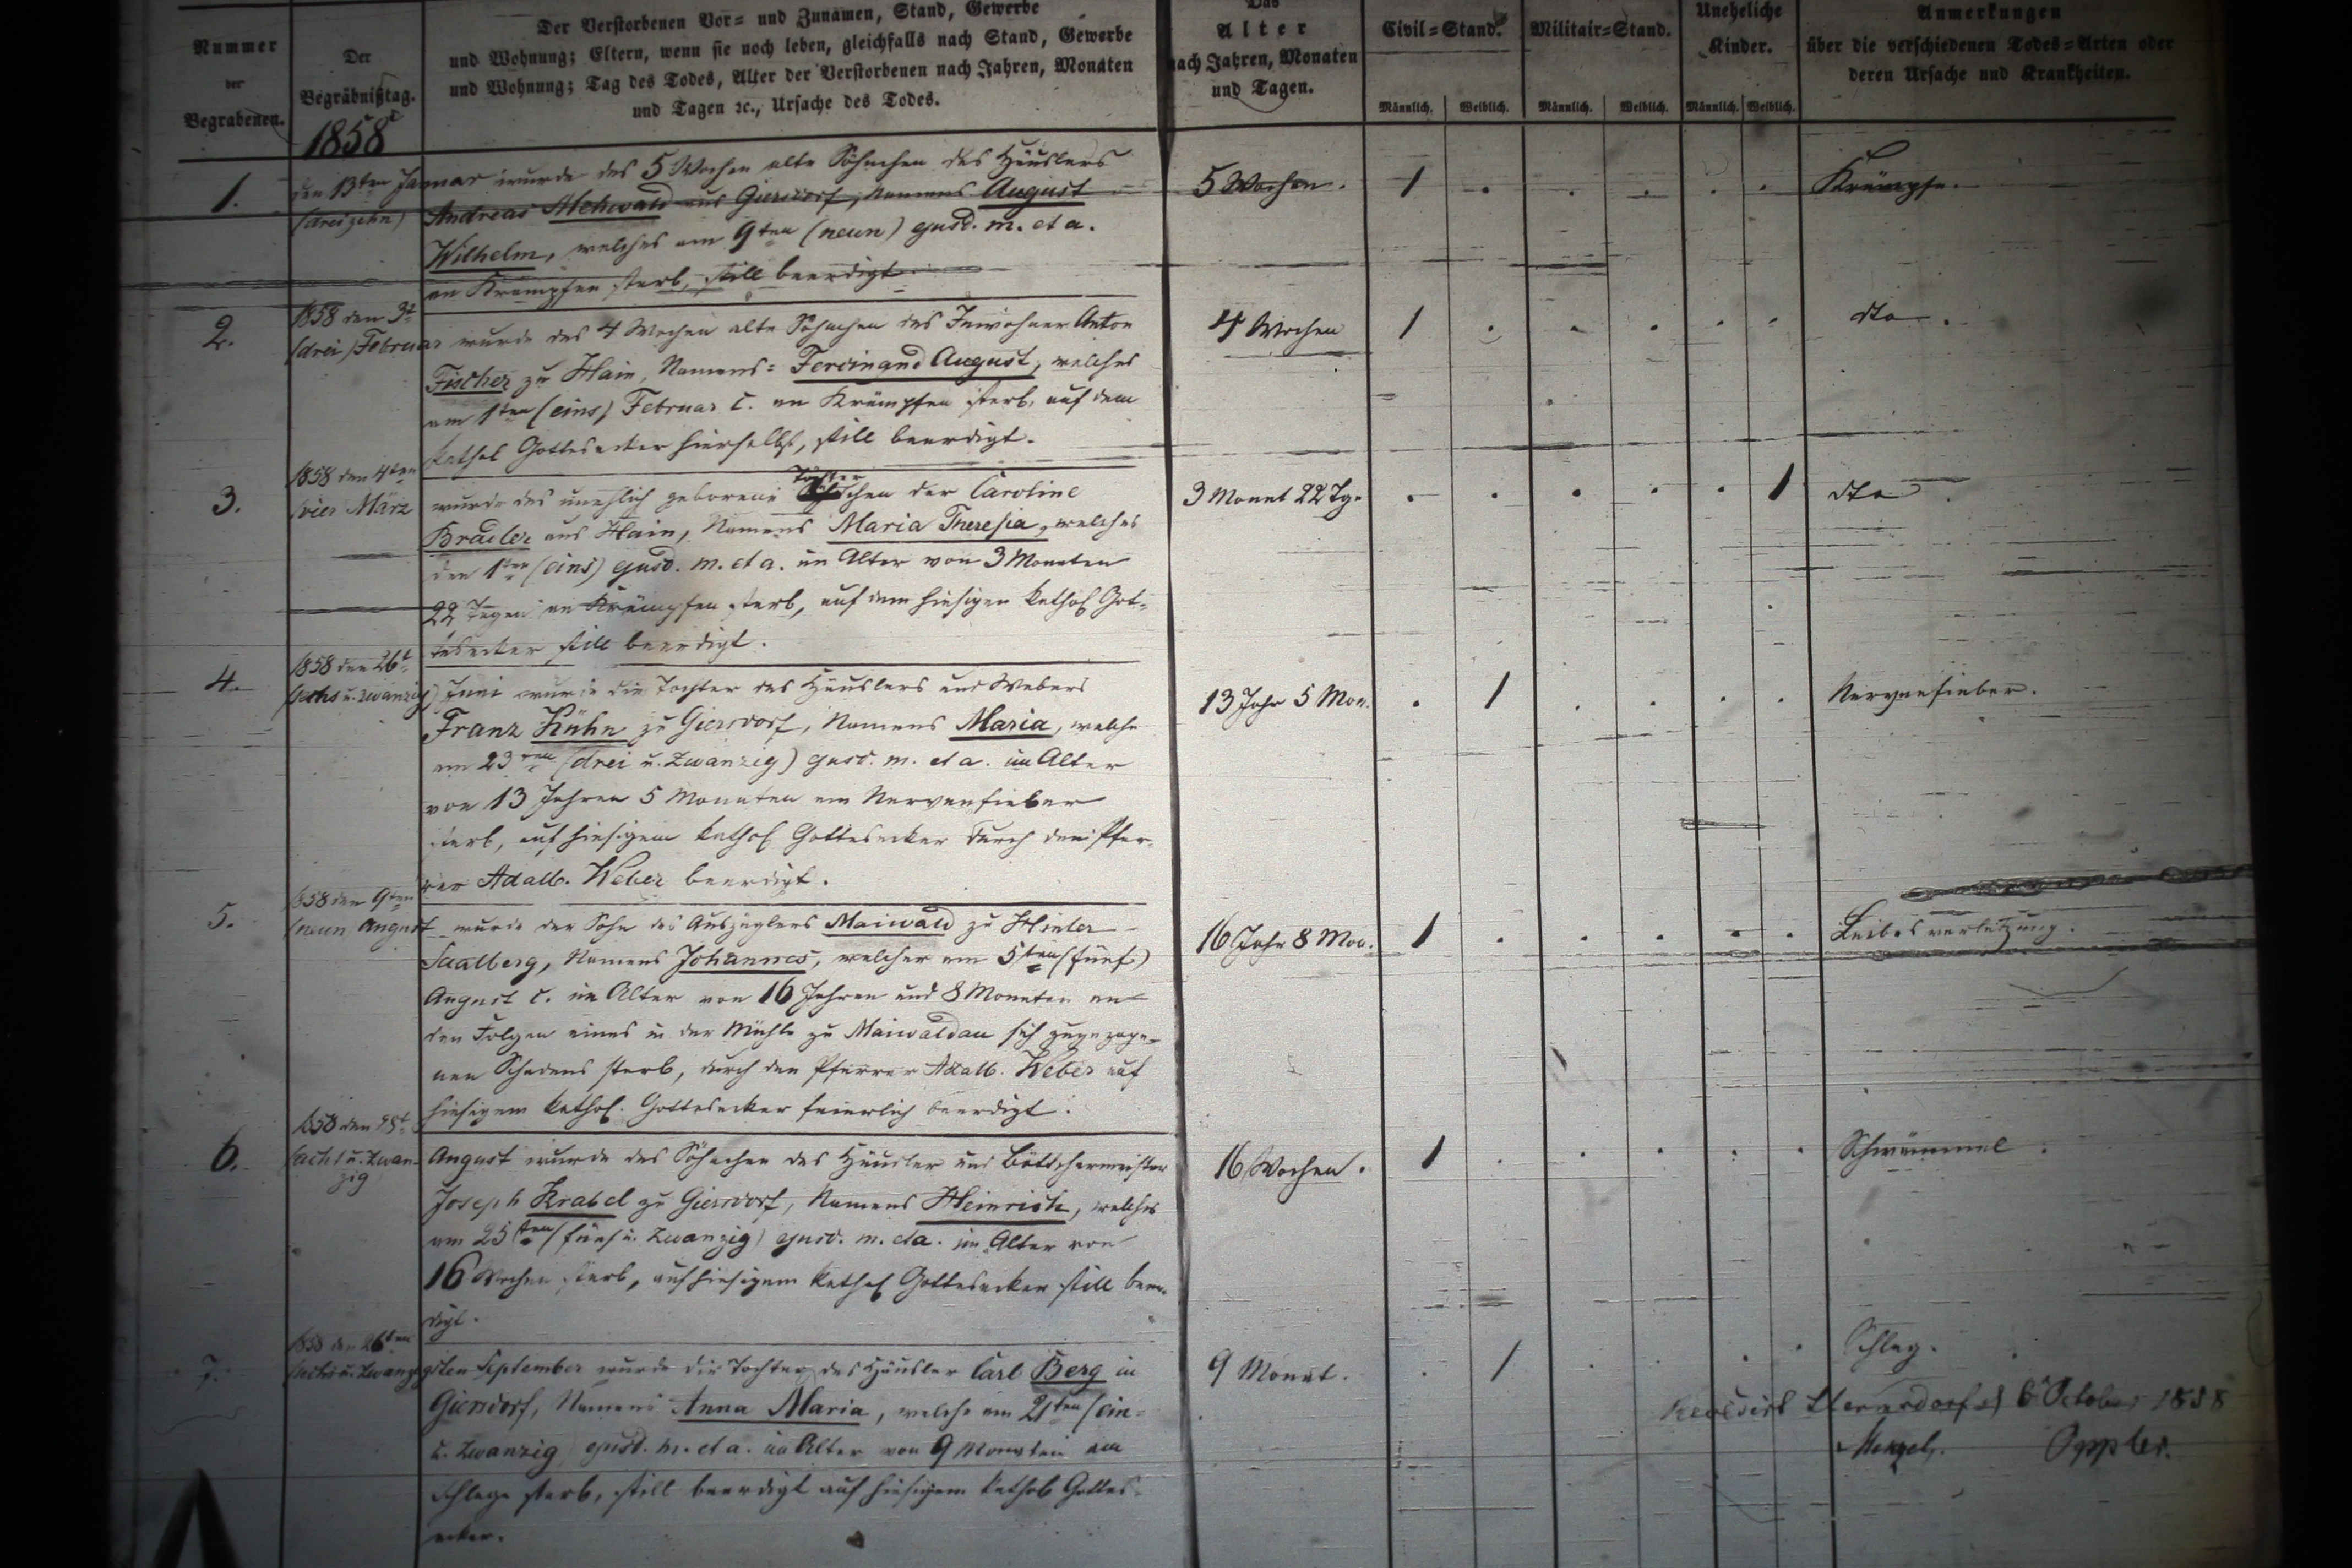 Nummer
der
Begrabenen.
Der
Begräbnißtag.
1858
Der Verstorbenen Vor= und Zunamen, Stand, Gewerbe
und Wohnung; Eltern, wenn sie noch leben, gleichfalls nach Stand, Gewerbe
und Wohnung; Tag des Todes, Alter der Verstorbenen nach Jahren, Monaten
und Tagen ꝛc., Ursache des Todes.
Das
Alter
nach Jahren, Monaten
und Tagen.
Civil=Stand.
Männlich. Weiblich.
Militair=Stand.
Männlich. Weiblich.
Uneheliche
Kinder.
Männlich. Weiblich.
Anmerkungen
über die verschiedenen Todes=Arten oder
deren Ursache und Krankheiten.
1.
den 13ten Januar wurde das 5 Wochen alte Söhnchen des Häuslers
(dreizehn) Andreas Mehwald aus Giersdorf, Namens August
Wilhelm, welches am 9ten (neun) ejusd. m. et a.
an Krämpfen starb, still beerdigt.
5 Wochen. 1 Krämpfe.
2.
1858 den 3t
(drei) Februar wurde das 4 Wochen alte Söhnchen des Inwohner Anton
Fischer zu Hain, Namens= Ferdinand August, welches
am 1ten (eins) Februar c. an Krämpfen starb, auf dem
kathol Gottesacker hierselbst, still beerdigt.
4 Wochen 1 dto.
3.
1858 den 4ten
(vier März wurde das unehlich geborene Tochter chen der Caroline
Bradler aus Hain, Namens Maria Theresia, welches
den 1ten (eins) ejusd. m. et a. im Alter von 3 Monaten
22 Tagen an Krämpfen starb, auf dem hiesigen kathol Got=
tesacker still beerdigt.
3 Monat 22 Tg. 1 dto
4.
1858 den 26t
(sechs u. zwanzig) Juni wurde die Tochter des Häuslers und Webers
Franz Kühn zu Giersdorf, Namens Maria, welche
am 23ten (drei u. zwanzig) ejusd. m. et a. im Alter
von 13 Jahren 5 Monaten am Nervenfieber
starb, auf hiesigem kathol Gottesacker durch den Pfar=
rer Adalb. Weber beerdigt.
13 Jahr 5 Mon. 1 Nervenfieber.
5.
1858 den 9ten
(neun August wurde der Sohn des Auszüglers Maiwald zu Hinter
Saalberg, Namens Johannes, welcher am 5ten (fünf)
August c. im Alter von 16 Jahren und 8 Monaten an
den Folgen eines in der Mühle zu Maiwaldau sich zugezoge=
nen Schadens starb, durch den Pfarrer Adalb. Weber auf
hiesigem kathol. Gottesacker feierlich beerdigt.
16 Jahr 8 Mon. 1 Leibesverletzung.
6.
1858 den 28t
(acht u. zwan= August wurde das Söhnchen des Häusler und Böttchermeister
zig
Joseph Krabel zu Giersdorf, Namens Heinrich, welches
am 25ten (fünf u. zwanzig) ejusd. m. et a. im Alter von
16 Wochen starb, auf hiesigem kathol Gottesacker still beer=
digt.
16 Wochen. 1 Schwämmel.
7.
1858 den 26ten
(sechs u. zwanzigsten September wurde die Tochter des Häusler Carl Berg in
Giersdorf, Namens Anna Maria, welche am 21ten (ein=
u. zwanzig) ejusd. m. et a. im Alter von 9 Monaten am
Schlage starb, still beerdigt auf hiesigem kathol Gottes=
acker.
9 Monat. 1 Schlag.
October 1858
Menzel. Oppler.